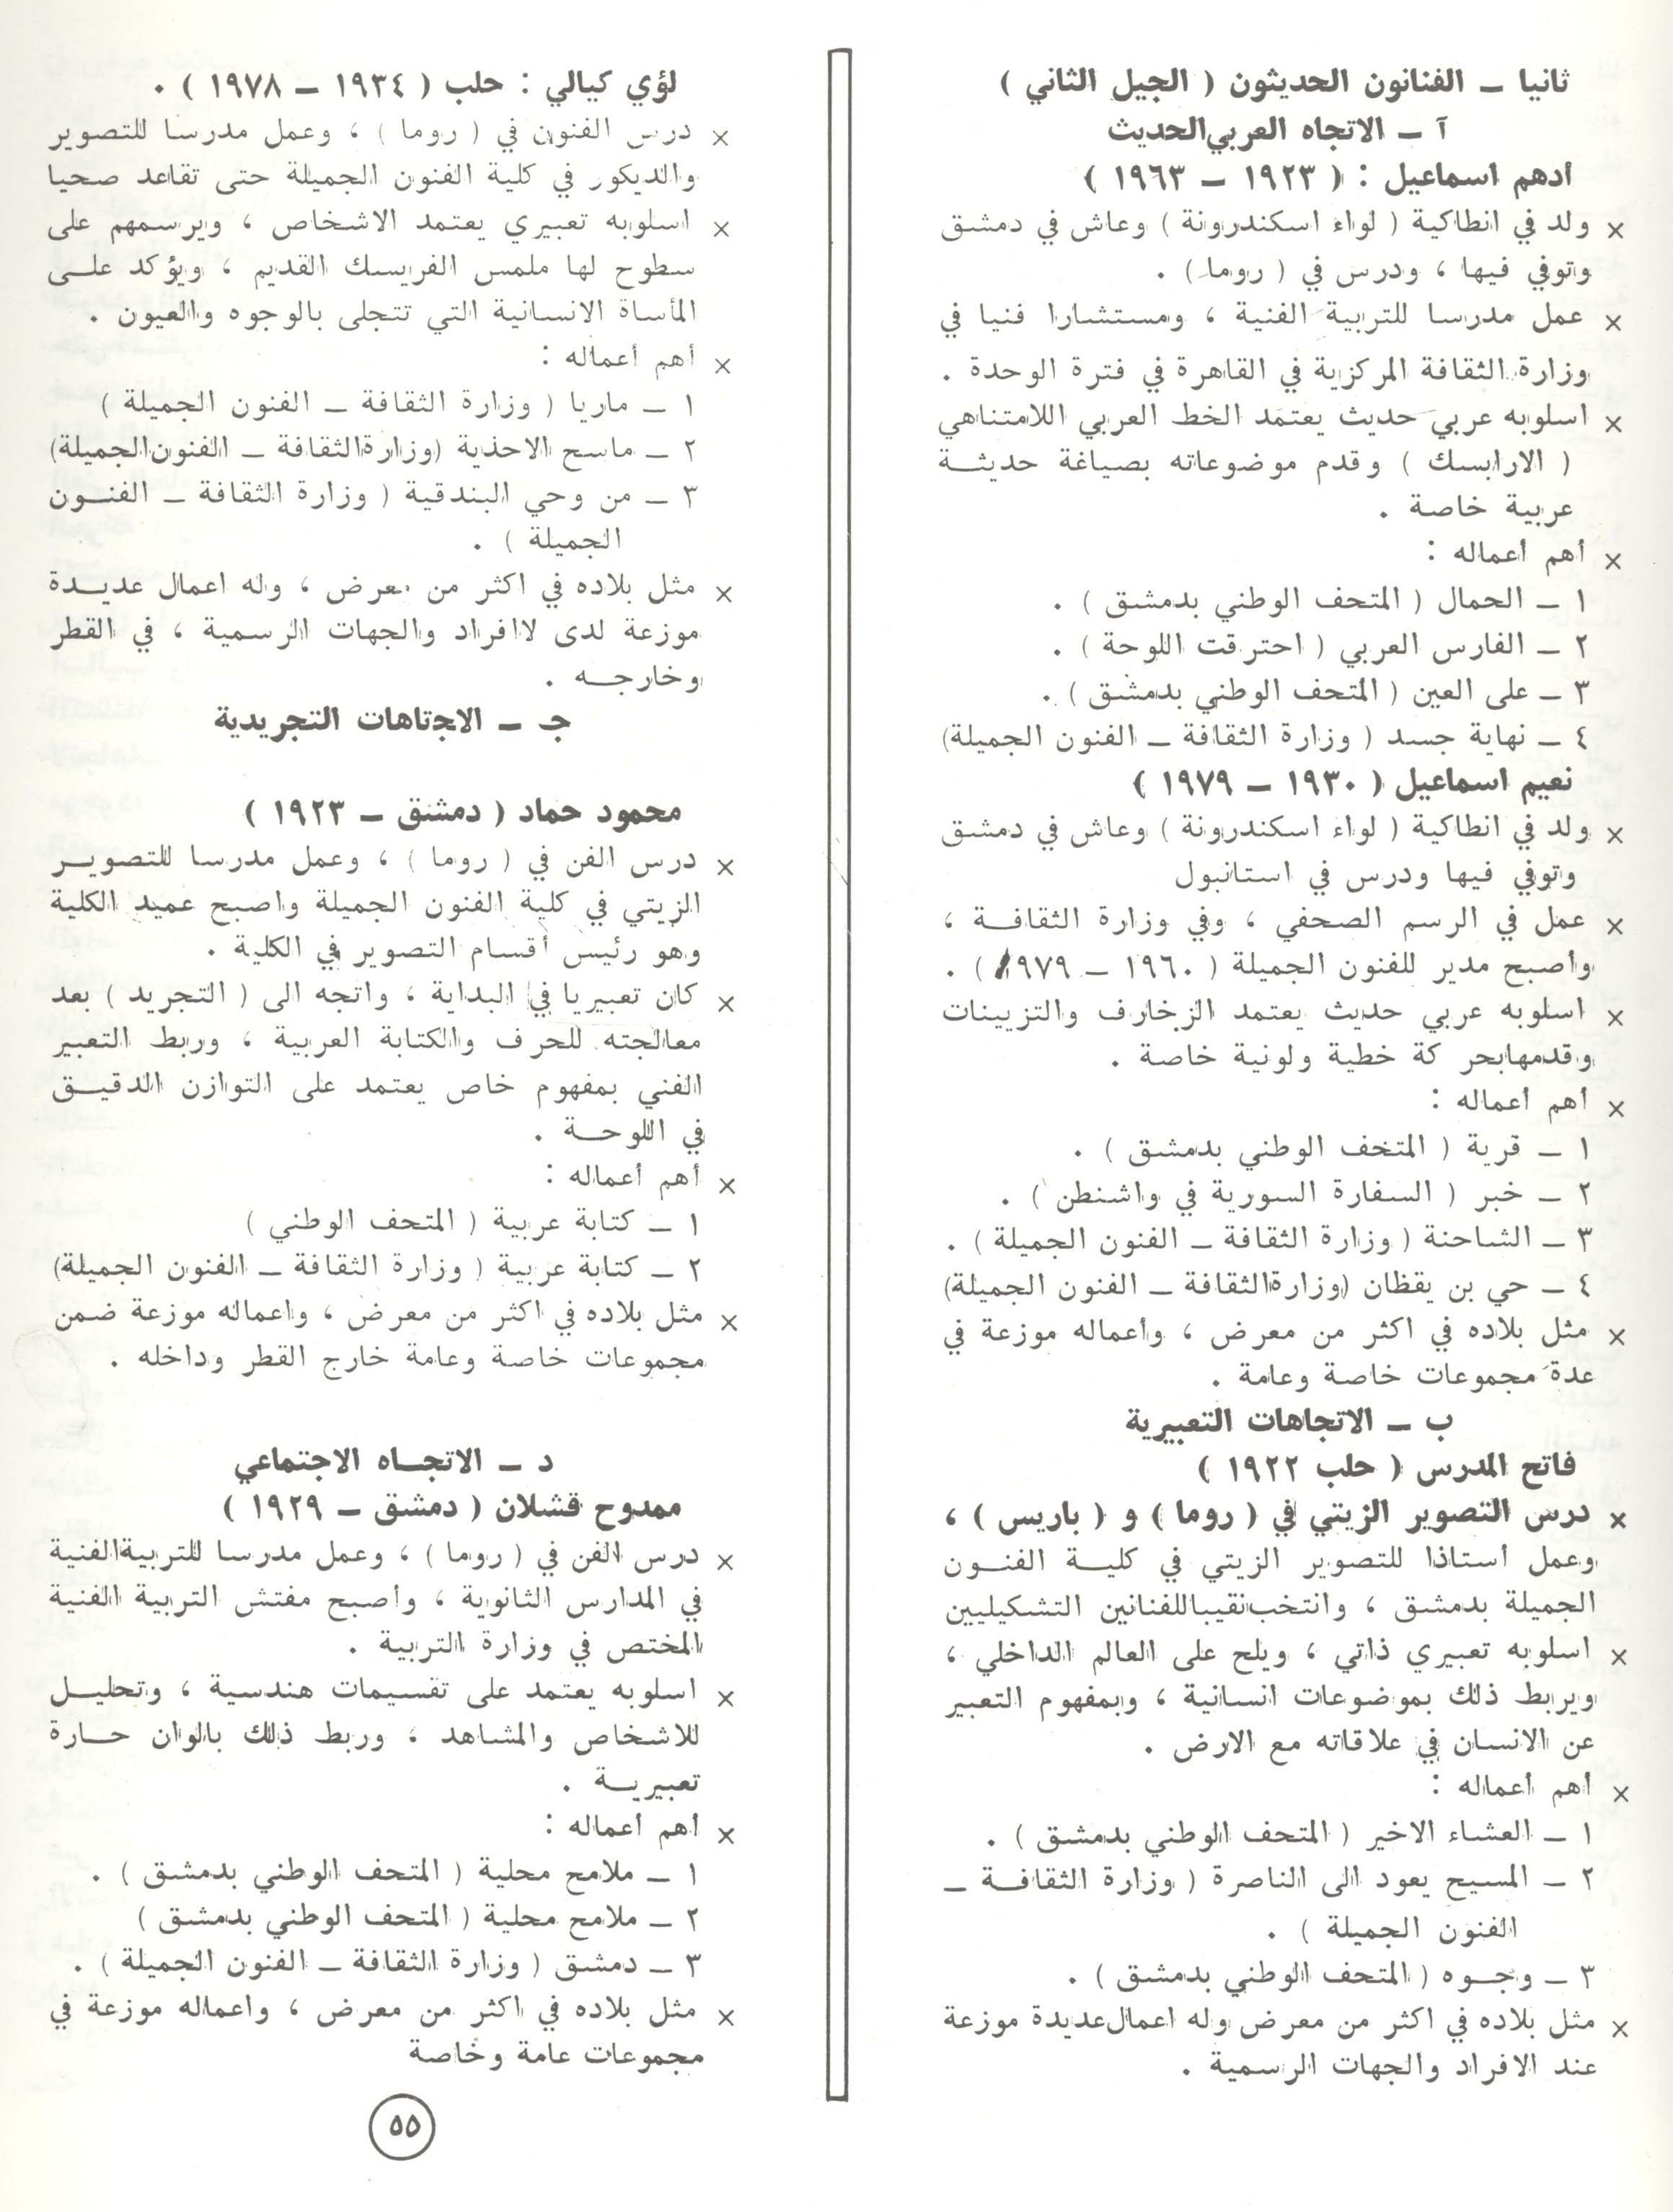 ثانيا ــ الفنانون الحديثون ( الجيل الثاني )
آ ــ الاتجاه العربي الحديث
أدهم اسماعيل : ( ١٩٢٣ ــ ١٩٦٣ )
× ولد في انطاكية ( لواء اسكندرونة ) وعاش في دمشق
وتوفي فيها ، ودرس في ( روما ) .
× عمل مدرسا للتربية الفنية ، ومستشارا فنيا في
وزارة الثقافة المركزية في القاهرة في فترة الوحدة .
× اسلوبه عربي حديث يعتمد الخط العربي اللامتناهي
( الارابسك ) وقدم موضوعاته بصياغة حديثة
عربية خاصة .
× أهم أعماله :
١ ــ الحمال ( المتحف الوطني بدمشق ) .
٢ ــ الفارس العربي ( احترقت اللوحة ) .
٣ ــ على العين ( المتحف الوطني بدمشق ) .
٤ ــ نهاية جسد ( وزارة الثقافة ــ الفنون الجميلة)
نعيم اسماعيل ( ١٩٣٠ ــ ١٩٧٩ )
× ولد في انطاكية ( لواء اسكندرونة ) وعاش في دمشق
وتوفي فيها ودرس في استانبول
× عمل في الرسم الصحفي ، وفي وزارة الثقافة ،
وأصبح مدير للفنون الجميلة ( ١٩٦٠ ــ ١٩٧٩ ) .
× اسلوبه عربي حديث يعتمد الزخارف والتزيينات
وقدمها بحركة خطية ولونية خاصة .
× أهم أعماله :
١ ــ قرية ( المتخف الوطني بدمشق ) .
٢ ــ خبر ( السفارة السورية في واشنطن ) .
٣ ــ الشاحنة ( وزارة الثقافة ــ الفنون الجميلة ) .
٤ ــ حي بن يقظان (وزارة الثقافة ــ الفنون الجميلة)
× مثل بلاده في اكثر من معرض ، وأعماله موزعة في
عدة مجموعات خاصة وعامة .
ب ــ الاتجاهات التعبيرية
فاتح المدرس ( حلب ١٩٢٢ )
× درس التصوير الزيتي في ( روما ) و ( باريس ) ،
وعمل أستاذا للتصوير الزيتي في كلية الفنون
الجميلة بدمشق ، وانتخب نقيبا للفنانين التشكيليين
× اسلوبه تعبيري ذاتي ، ويلح على العالم الداخلي ،
ويربط ذلك بموضوعات انسانية ، وبمفهوم التعبير
عن الانسان في علاقاته مع الارض .
× أهم أعماله :
١ ــ العشاء الاخير ( المتحف الوطني بدمشق ) .
٢ ــ المسيح يعود الى الناصرة ( وزارة الثقافة ــ
الفنون الجميلة ) .
٣ ــ وجوه ( المتحف الوطني بدمشق ) .
× مثل بلاده في اكثر من معرض وله اعمال عديدة موزعة
عند الافراد والجهات الرسمية .
لؤي كيالي : حلب ( ١٩٣٤ ــ ١٩٧٨ ) .
× درس الفنون في ( روما ) ، وعمل مدرسا للتصوير
والديكور في كلية الفنون الجميلة حتى تقاعد صحيا
× اسلوبه تعبيري يعتمد الاشخاص ، ويرسمهم على
سطوح لها ملمس الفريسك القديم ، ويؤكد على
المأساة الانسانية التي تتجلى بالوجوه والعيون .
× أهم أعماله :
١ ــ ماريا ( وزارة الثقافة ــ الفنون الجميلة )
٢ ــ ماسح الاحذية (وزارة الثقافة ــ الفنون الجميلة)
٣ ــ من وحي البندقية ( وزارة الثقافة ــ الفنون
الجميلة ) .
× مثل بلاده في اكثر من معرض ، وله اعمال عديدة
موزعة لدى لاافراد والجهات الرسمية ، في القطر
وخارجه .
جـ ــ الاجتاهات التجريدية
محمود حماد ( دمشق ــ ١٩٢٣ )
× درس الفن في ( روما ) ، وعمل مدرسا للتصوير
الزيتي في كلية الفنون الجميلة واصبح عميد الكلية
وهو رئيس أقسام التصوير في الكلية .
× كان تعبيريا في البداية ، واتجه الى ( التجريد ) بعد
معالجته للحرف والكتابة العربية ، وربط التعبير
الفني بمفهوم خاص يعتمد على التوازن الدقيق
في اللوحة .
× أهم أعماله :
١ ــ كتابة عربية ( المتحف الوطني )
٢ ــ كتابة عربية ( وزارة الثقافة ــ الفنون الجميلة)
× مثل بلاده في اكثر من معرض ، واعماله موزعة ضمن
مجموعات خاصة وعامة خارج القطر وداخله .
د ــ الاتجاه الاجتماعي
ممدوح قشلان ( دمشق ــ ١٩٢٩ )
× درس الفن في ( روما ) ، وعمل مدرسا للتربية الفنية
في المدارس الثانوية ، وأصبح مفتش التربية الفنية
المختص في وزارة التربية .
× اسلوبه يعتمد على تقسيمات هندسية ، وتحليل
للاشخاص والمشاهد ، وربط ذلك بالوان حارة
تعبيرية .
× أهم أعماله :
١ ــ ملامح محلية ( المتحف الوطني بدمشق ) .
٢ ــ ملامح محلية ( المتحف الوطني بدمشق )
٣ ــ دمشق ( وزارة الثقافة ــ الفنون الجميلة ) .
× مثل بلاده في اكثر من معرض ، واعماله موزعة في
مجموعات عامة وخاصة
٥٥